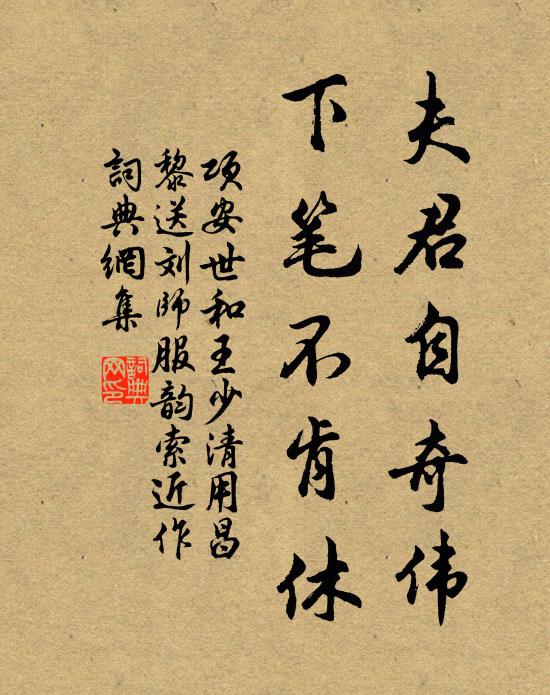 夫君自奇伟
下笔不肯休
项安世和王少清用昌
黎送刘師服韵索近作
詞典網集
詞典
网印